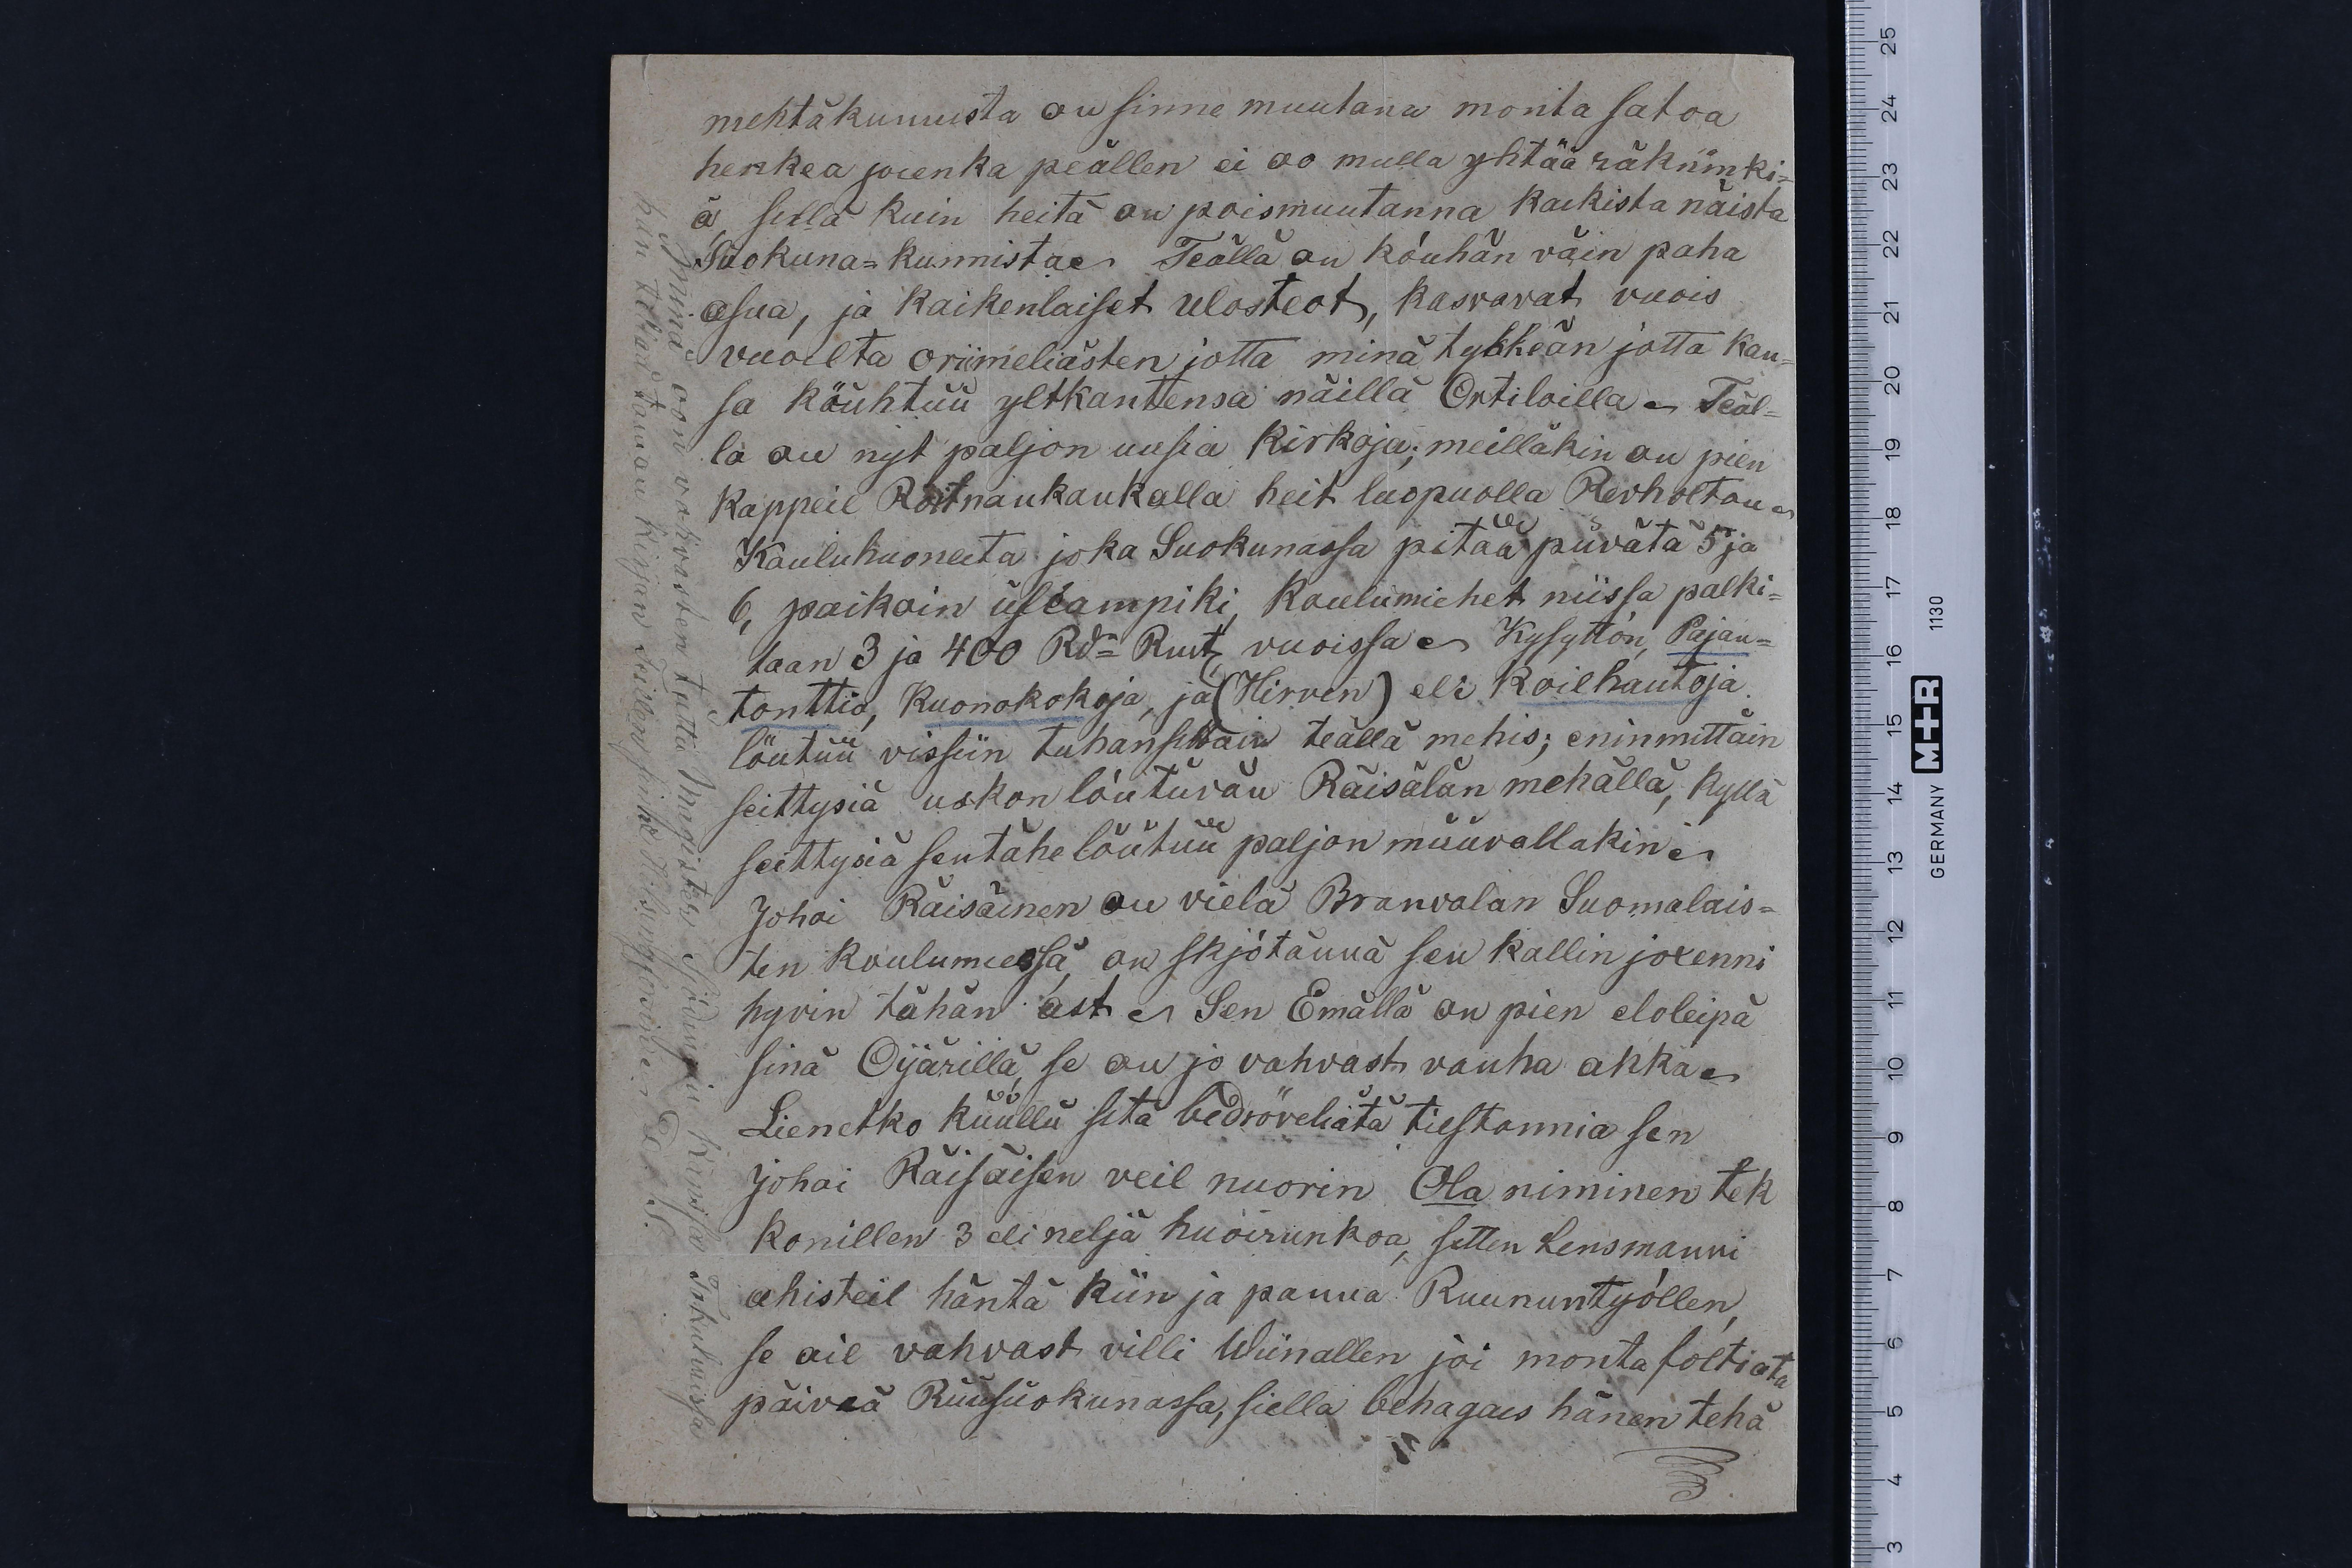 mehtäkunnista ou sinne muutana monta satoa
henkea joienka peällen ei oo mulla yhtää räkninki=
ä, sillä kuin heitä ou poismuutanna kaikista näista
Suokuna=kunnista Teällä ou köuhän väin paha
asua, ja kaikenlaiset ulosteot, kasvavat vuois
vuoilta oriimeliästen jotta minä tykkeän jotta kan=
sa köuhtuü yltkantensa näillä Ortiloilla Teäl=
lä ou nyt paljon uusia kirkoja; meilläkin ou pien
kappeil Röitnaukaukalla heit luopuolla Revholtau
Kouluhuoneita joka Suokunassa pitää püvätä 5 ja
6, paikoin üsiampiki, koulumiehet niissa palki=
taan 3 ja 400 Rd= Rmt, vuoissa Kysyttön, Pajau=
tonttia, kuonokokoja, ja (Hirven) eli koilhautoja
löutüü vissiin tuhansittain teällä mehis; eninmittäin
seittysiä uskon löutüvän Räisälän mehällä, kyllä
seittysiä sentähe löütüü paljon müüvallakin
Johoi Räisäinen ou vielä Branvalan Suomalais=
ten koulumiessä, ou skjötännä sen kallin joxenni
hyvin tähän ást Sen Emällä ou pien eloleipä
sinä Öijärillä, se ou jo vahvast vanha akka
Lienetko küüllü sitä bedröveliätä tiestonnia sen
Johoi Räisäisen veil nuorin Ola niminen tek
konillen 3 eli neljä huoirunkoa, sitten Lensmanni
ahisteil häntä kiin ja panna Ruununtyöllen,
se oil vahvast villi Wiinallen joi monta foltiata
päiveä Ruüsuokunassa, siellä behagais hänen tehä
Minä oon vahvasten tuttu Magister kanssa
kun teköö tämän kirjan Teillen